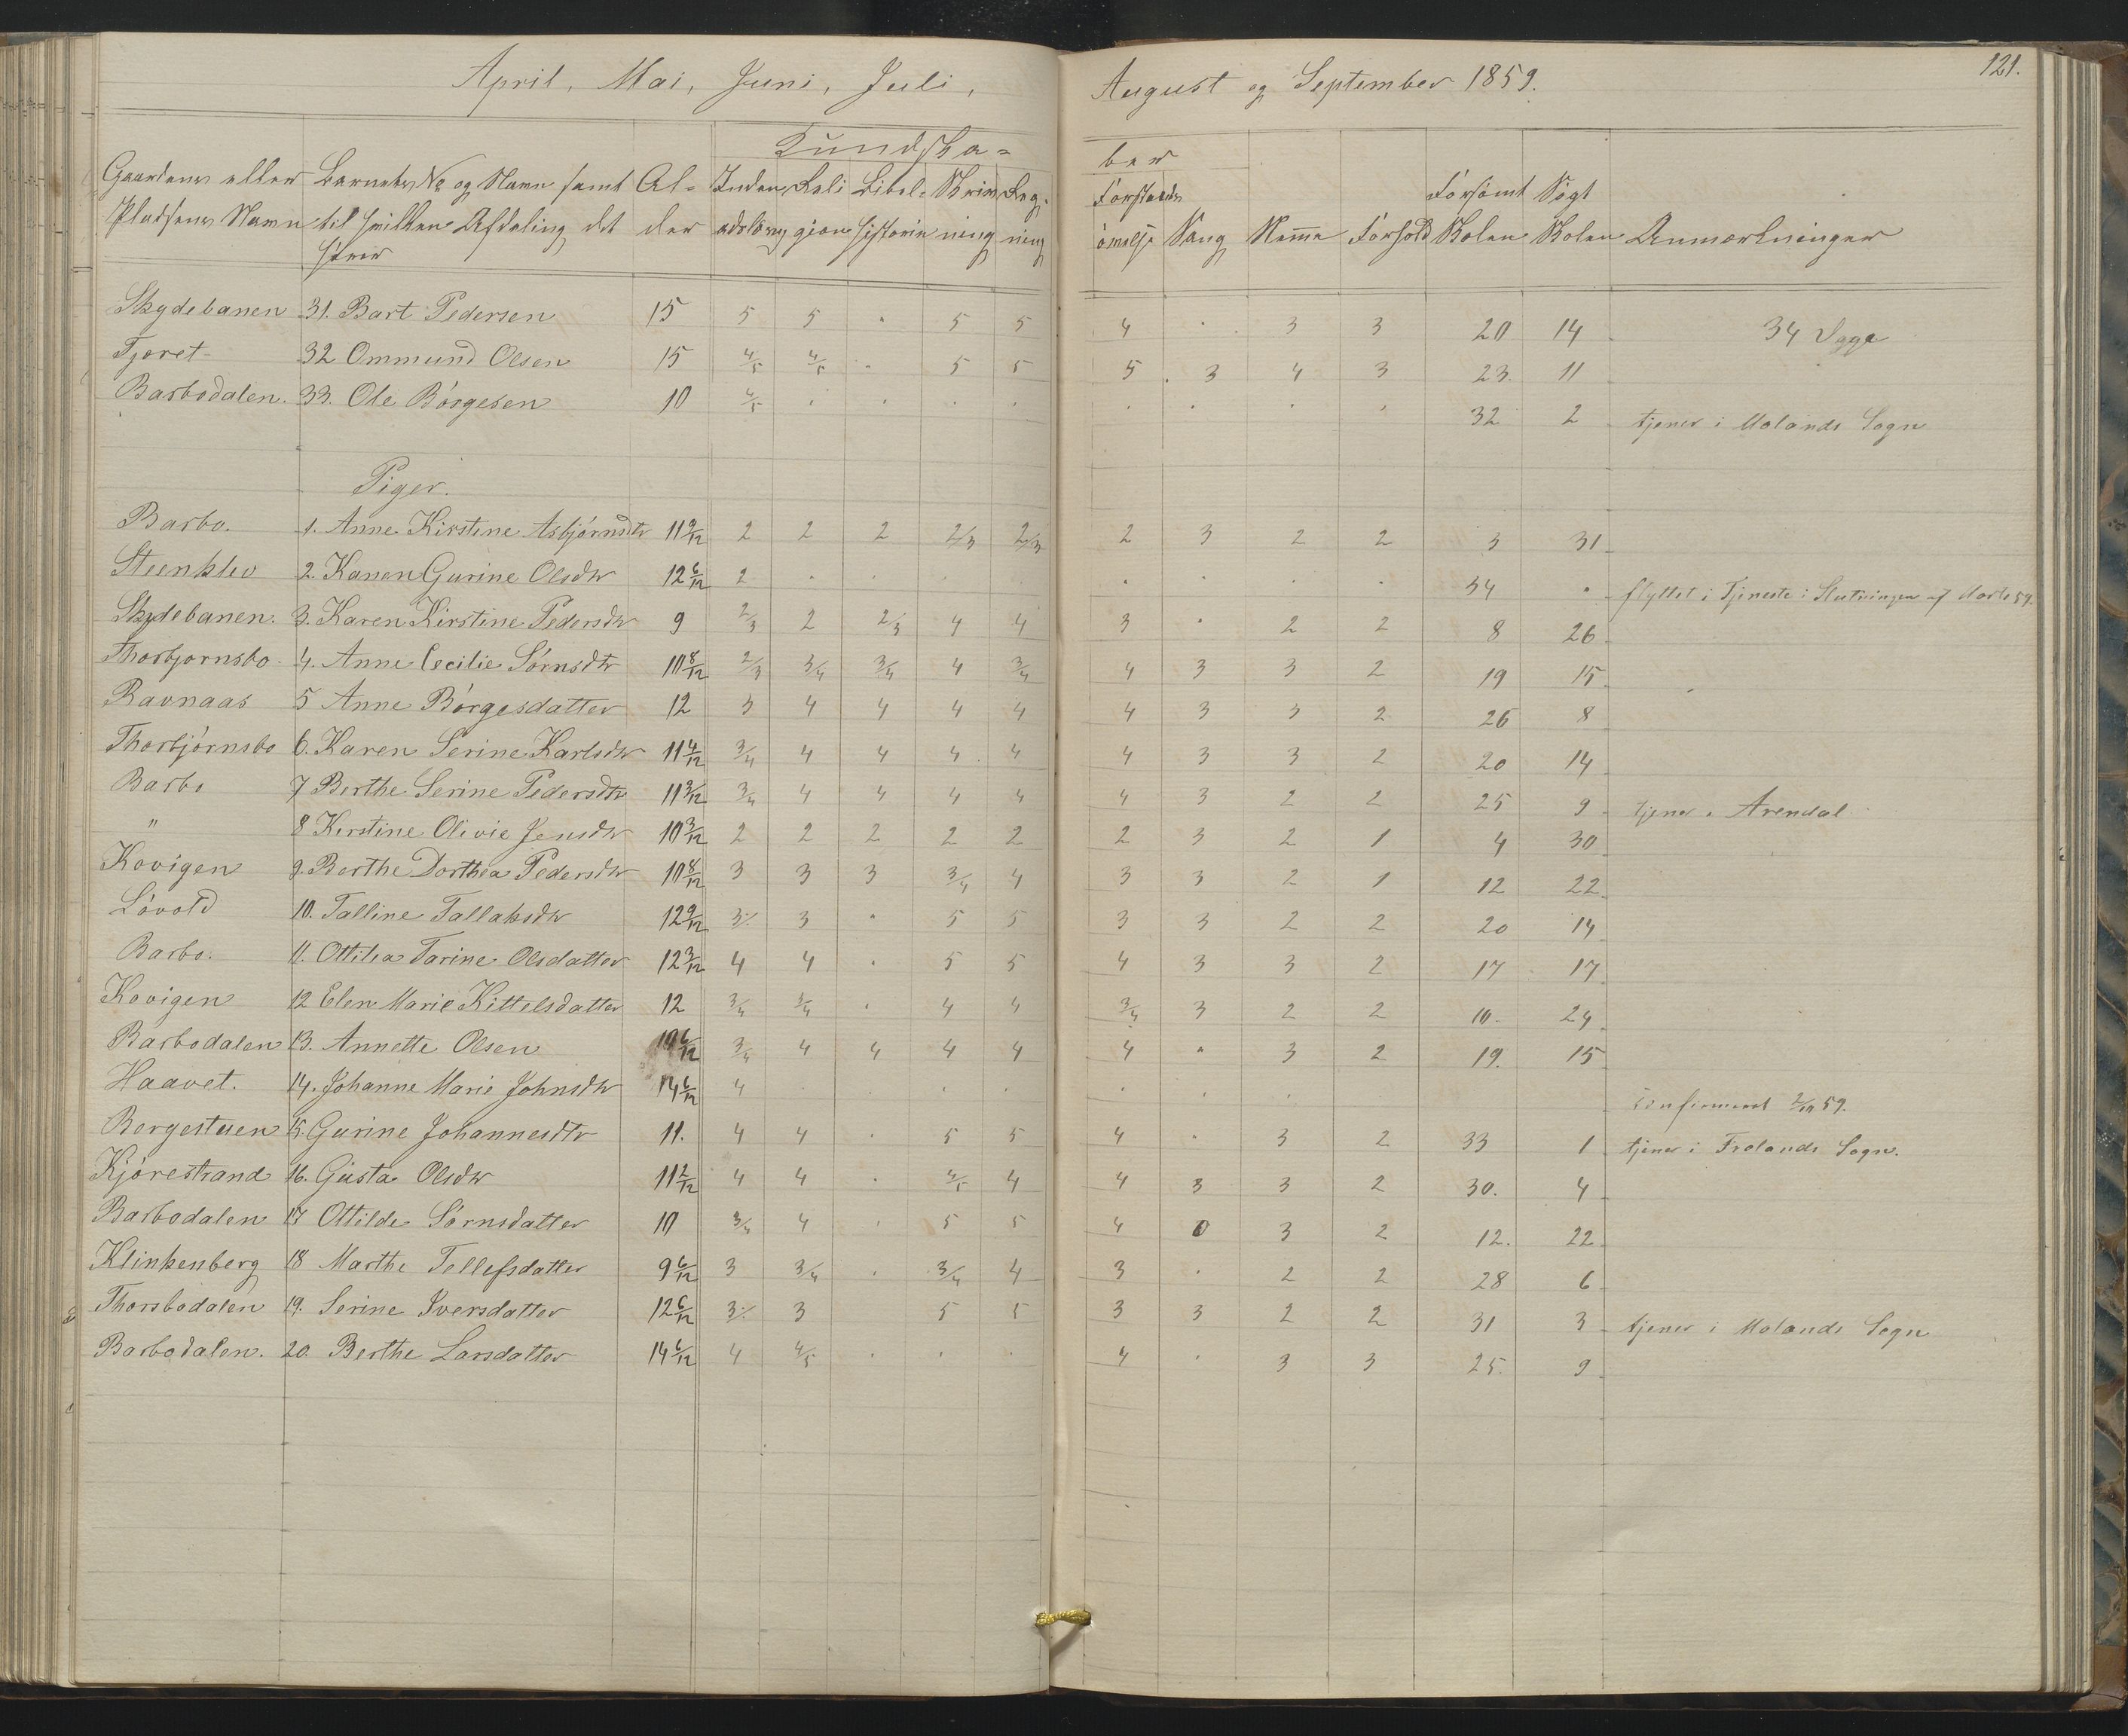 April, Mai, Juni, Juli,
August og September 1859.
121.
Kundska=
ber
Gaardens eller Pladsens Navn
Barnets No og Navn samt til hvilken Afdeling det hører
Al- der
Inden adslæsn
Reli gion
Bibel- historie
Skriv ning
Reg- ning
Forstands
Sang
Nemme
Forhold
Forsømt Skolen
Søgt Skolen
Anmærkninger
Skydebanen 31. Bart Pedersen 15 5 5 . 5 5 4 . 3 3 20 14 34 Dage
Tjoret 32 Ommund Olsen 15 4/5 4/5 . 5 5 5 . 3 4 3 23. 11
Barbodalen. 33. Ole Börgesen 10 4/5 . . . . . . . . 32 2 tjener i Molands Sogn
Piger.
Barbo. 1. Anne Kirstine Asbjörnsdtr 11 9/12 2 2 2 2/3 2/3 2 3 2 2 3 31
Steenklev 2. Karen Gurine Olsdtr 12 6/12 2 . . . . . . 34 . flyttet i Tjeneste i Slutningen af Marts 59.
Skydebanen. 3. Karen Kirstine Pedersdtr 9 2/3 2 2/3 4 4 3 . 2 2 8 26
Thorbjornsbo 4. Anne Cecilie Sörnsdtr 10 8/12 2/3 3/4 3/4 4 3/4 4 3 3 2 19 15
Ravnaas 5 Anne Börgesdatter 12 3 4 4 4 4 4 3 3 2 26 8
Thorbjörnsbo 6. Karen Serine Karlsdtr 11 4/12 3/4 4 4 4 4 4 3 3 2 20 14
Barbo 7 Berthe Serine Pedersdtr 11 3/12 3/4 4 4 4 4 4 3 2 2 25 9 tjener i Arendal
" 8 Kirstine Olivie Jensdtr 10 3/12 2 2 2 2 2 2 3 2 1 4 30
Kovigen 9. Berthe Dorthea Pedersdtr 10 8/12 3 3 3 3/4 4 3 3 2 1 12 22
Lövold 10. Talline Tallaksdtr 12 9/12 3 3 . 5 5 3 3 2 2 20 14
Barbo. 11. Ottilia Tarine Olsdatter 12 3/12 4 4 . 5 5 4 3 3 2 17 17
Kovigen 12 Elen Marie Kittelsdatter 12 3/4 3/4 . 4 4 3/4 3 2 2 10. 24
Barbodalen 13. Annette Olsen 10 6/12 3/4 4 4 4 4 4 . 3 2 19. 15
Haavet. 14. Johanne Marie Johnsdtr 14 6/12 4 . . . . . . confirmeret 2/10 59.
Bergestuen 15. Gurine Johannesdtr 11. 4 4 . 5 5 4 . 3 2 33 1 tjener i Frolands Sogn.
Kjörestrand 16. Gusta Olsdtr 11 2/12 4 4 . 4/5 4 4 3 3 2 30. 4
Barbodalen 17 Ottilde Sörnsdatter 10 3/4 4 . 5 5 4 0 3 2 12. 22
Klinkenberg 18 Marthe Tellefsdatter 9 6/12 3 3/4 . 3/4 4 3 . 2 2 28 6
Thorsbodalen 19. Serine Iversdatter 12 6/12 3 3 5 5 3 3 2 2 31 3 tjener i Molands Sogn
Barbodalen. 20. Berthe Larsdatter 14 6/12 4 4/5 . . . 4 . 3 3 25. 9